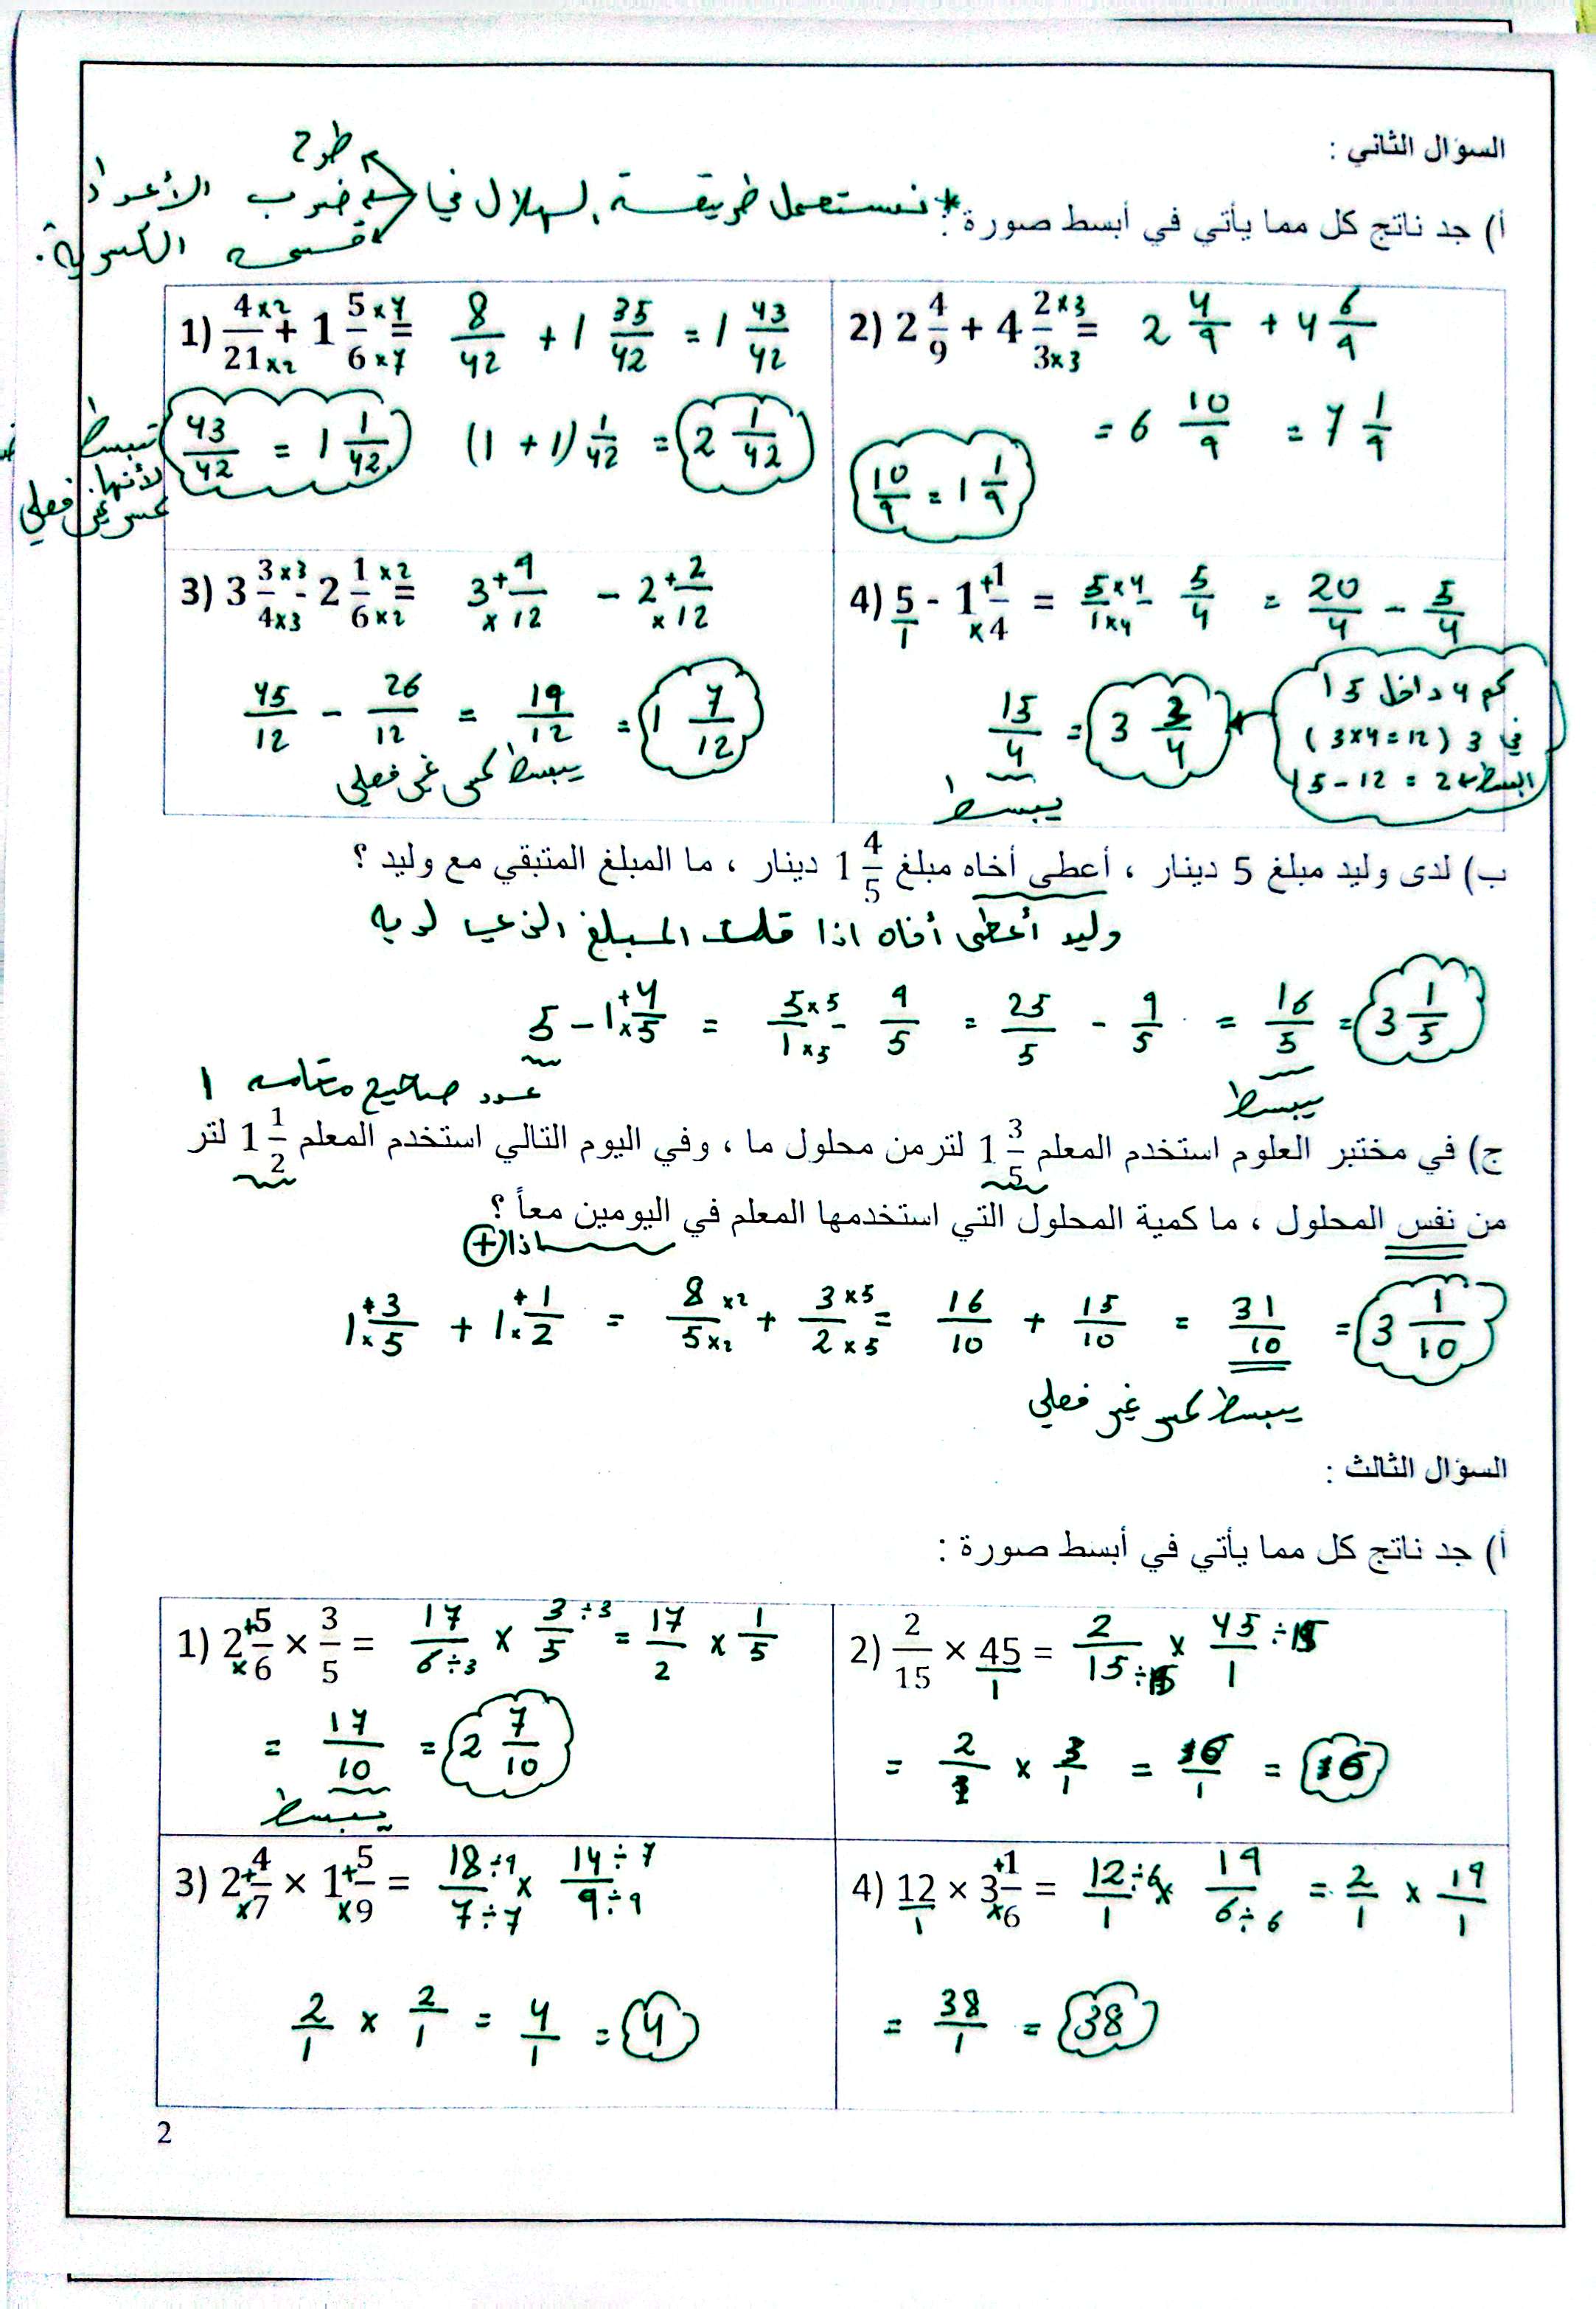 السؤال الثاني :
طرح
أ) جد ناتج كل مما يأتي في أبسط صورة : * نستعمل طريقة الهلال في ضرب الأعداد
قسمة الكسرية.
1) 4/21 ×2/×2 + 1 5/6 ×7/×7 = 8/42 + 1 35/42 = 1 43/42
43/42 = 1 1/42 (1 + 1) 1/42 = 2 1/42
تبسط
لأنها
كسر غير فعلي
2) 2 4/9 + 4 2/3 ×3/×3 = 2 4/9 + 4 6/9
= 6 10/9 = 7 1/9
10/9 = 1 1/9
3) 3 3/4 ×3/×3 - 2 1/6 ×2/×2 = 3 +/× 9/12 - 2 +/× 2/12
45/12 - 26/12 = 19/12 = 1 7/12
يبسط كسر غير فعلي
4) 5/1 - 1 +/× 1/4 = 5/1 ×4/×4 - 5/4 = 20/4 - 5/4
15/4 = 3 3/4
يبسط
كم 4 داخل 15
في 3 (3×4=12)
15-12 = 2 البسط
ب) لدى وليد مبلغ 5 دينار ، أعطى أخاه مبلغ 1 4/5 دينار ، ما المبلغ المتبقي مع وليد ؟
وليد أعطى أخاه اذا قلت المبلغ الذي لديه
5 - 1 +/× 4/5 = 5/1 ×5/×5 - 9/5 = 25/5 - 9/5 = 16/5 = 3 1/5
عدد صحيح مقامه 1
يبسط
ج) في مختبر العلوم استخدم المعلم 1 3/5 لتر من محلول ما ، وفي اليوم التالي استخدم المعلم 1 1/2 لتر
من نفس المحلول ، ما كمية المحلول التي استخدمها المعلم في اليومين معاً ؟
اذا +
1 +/× 3/5 + 1 +/× 1/2 = 8/5 ×2/×2 + 3/2 ×5/×5 = 16/10 + 15/10 = 31/10 = 3 1/10
يبسط كسر غير فعلي
السؤال الثالث :
أ) جد ناتج كل مما يأتي في أبسط صورة :
1) 2 +/× 5/6 × 3/5 = 17/6÷3 × 3÷3/5 = 17/2 × 1/5
= 17/10 = 2 7/10
يبسط
2) 2/15 × 45/1 = 2/15÷15 × 45÷15/1
= 2/1 × 3/1 = 6/1 = 6
3) 2 +/× 4/7 × 1 +/× 5/9 = 18÷9/7÷7 × 14÷7/9÷9
2/1 × 2/1 = 4/1 = 4
4) 12/1 × 3 +/× 1/6 = 12÷6/1 × 19/6÷6 = 2/1 × 19/1
= 38/1 = 38
2